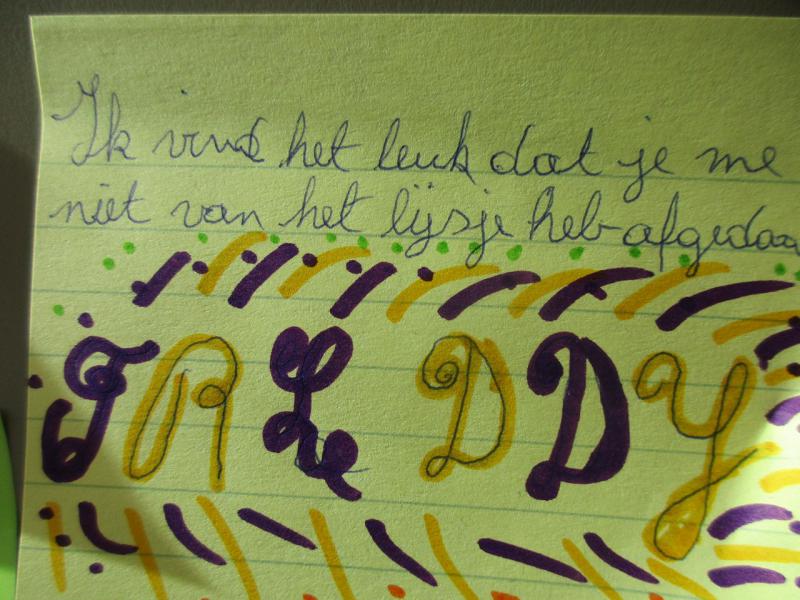 Ik vind het leuk dat je me
niet van het lijsje heb afgedaa
FREDDY